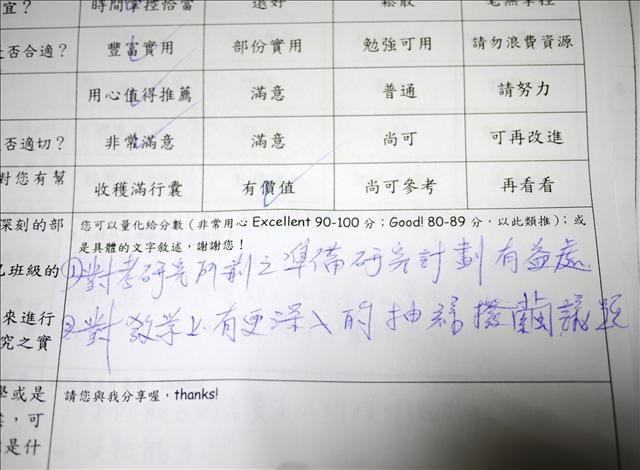 宜？ 時間掌控恰當 還好 鬆散 毫無掌控
是否合適？ 豐富實用 部份實用 勉強可用 請勿浪費資源
用心值得推薦 滿意 普通 請努力
是否適切？ 非常滿意 滿意 尚可 可再改進
對您有幫 收穫滿行囊 有價值 尚可參考 再看看
深刻的部 您可以量化給分數（非常用心 Excellent 90-100 分；Good! 80-89 分，以此類推）；或
是具體的文字敘述，謝謝您！
班級的 ①對考研究所前之準備研究計劃有益處
來進行 ②對教學上有更深入的抽絲撥繭議題
究之實
學或是 請您與我分享喔，thanks!
，可
是什